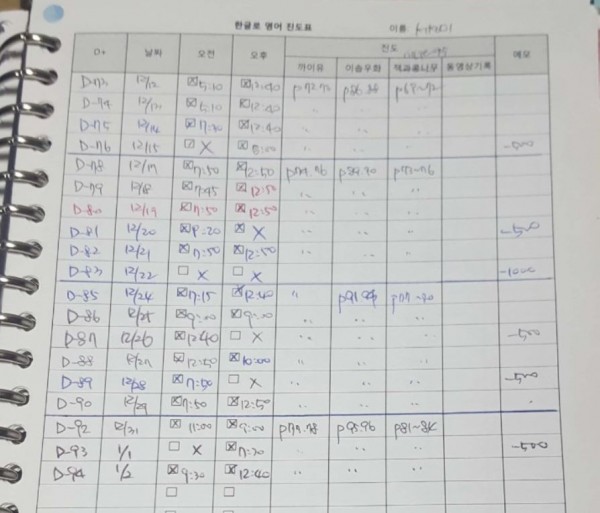 한글로 영어 진도표 이름
D+ 날짜 오전 오후 진도 메모
까이유 이솝우화 잭과콩나무 동영상기록
D-73 12/12 ☒ 5:10 ☒ 12:40 p72.73 p86.88 p69-72
D-74 12/13 ☒ 5:10 ☒ 12:40 〃 〃 〃
D-75 12/14 ☒ 7:40 ☒ 12:40 〃 〃 〃
D-76 12/15 X ☒ 8:00 〃 〃 〃 -500
D-78 12/17 ☒ 7:50 ☒ 12:50 p74.76 p89.90 p73-76
D-79 12/18 ☒ 7:45 ☒ 12:50 〃 〃 〃
D-80 12/19 ☒ 7:50 ☒ 12:50 〃 〃 〃
D-81 12/20 ☒ 8:20 ☒ X 〃 〃 〃 -500
D-82 12/21 ☒ 7:50 ☒ 12:50 〃 〃 〃
D-83 12/22 ☐ X ☐ X 〃 〃 〃 -1000
D-85 12/24 ☒ 7:15 ☒ 12:40 〃 p77-80
D-86 12/25 ☒ 9:00 ☒ 9:00 〃 〃 〃
D-87 12/26 ☒ 12:40 ☐ X 〃 〃 〃 -500
D-88 12/27 ☒ 12:50 ☒ 10:00 〃 〃 〃
D-89 12/28 ☒ 7:50 ☐ X 〃 〃 〃 -500
D-90 12/29 ☒ 7:50 ☒ 12:50 〃 〃 〃
D-92 12/31 ☒ 11:00 ☒ 9:00 p77.78 p95.96 p81-84
D-93 1/1 ☐ X ☒ 7:30 〃 〃 〃 -500
D-94 1/2 ☒ 9:30 ☒ 12:40 〃 〃 〃